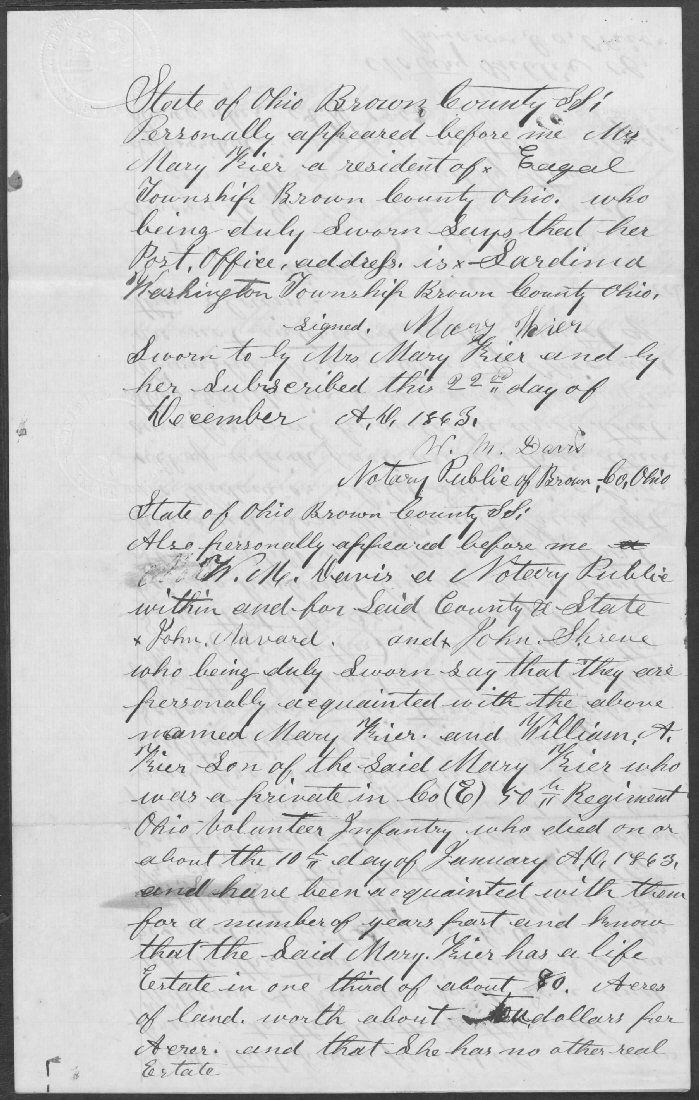 State of Ohio Brown County SS;
Personally appeared before me Mrs
Mary Kier a resident of x Eagal
Township Brown County Ohio. who
being duly Sworn Says that her
Post, Office, address. is x Sardinia
Washington Township Brown County Ohio,
signed. Mary Kier
Sworn to by Mrs Mary Kier and by
her Subscribed this 22nd day of
December A.D, 1863.
W. M. Davis
Notary Public of Brown, Co, Ohio
State of Ohio Brown County SS;
Also personally appeared before me
W. M. Davis a Notary Public
within and for Said County & State
x John. and x John. Shreve
who being duly Sworn say that they are
personally acquainted with the above
named Mary Kier. and William. A.
Kier Son of the Said Mary Kier who
was a private in Co (E) 50th Regiment
Ohio Volunteer Infantry who died on or
about the 10th day of January A.D, 1863.
and have been acquainted with them
for a number of years past and know
that the Said Mary. Kier has a life
Estate in one third of about 80. Acres
of land. worth about Ten dollars per
Acrer. and that She has no other real
Estate